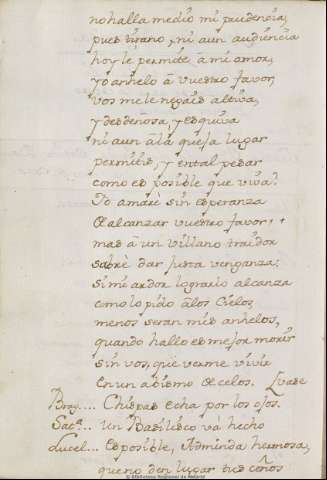 no halla medio mi prudencia,
pues tirano, ni aun audiencia
hoy le permite â mi amor,
yo anhelo â vuestro favor,
vos me le negais altiva,
y desdeñosa, y esquiva
ni aun âla queja lugar
permitis, y en tal pesar
como es posible que viva?
Yo amarè sin esperanza
de alcanzar vuestro favor,
mas â un villano traidor
sabrè dar justa venganza:
si mi ardor lograrlo alcanza
como lo pido âlos Cielos,
menos seran mis anhelos,
quando hallo es mejor morir
sin vos, que verme vivir
en un abismo de celos. Vase
Brag.... Chispas echa por los ojos.
Sac.ª.. Un Basilisco va hecho
Lucel... Es posible, Adminda hermosa,
que no den lugar tus ceños
© Biblioteca Regional de Madrid